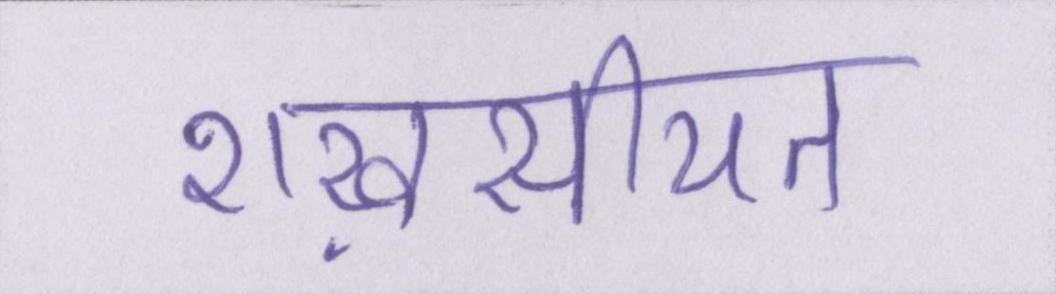 शख़सीयत